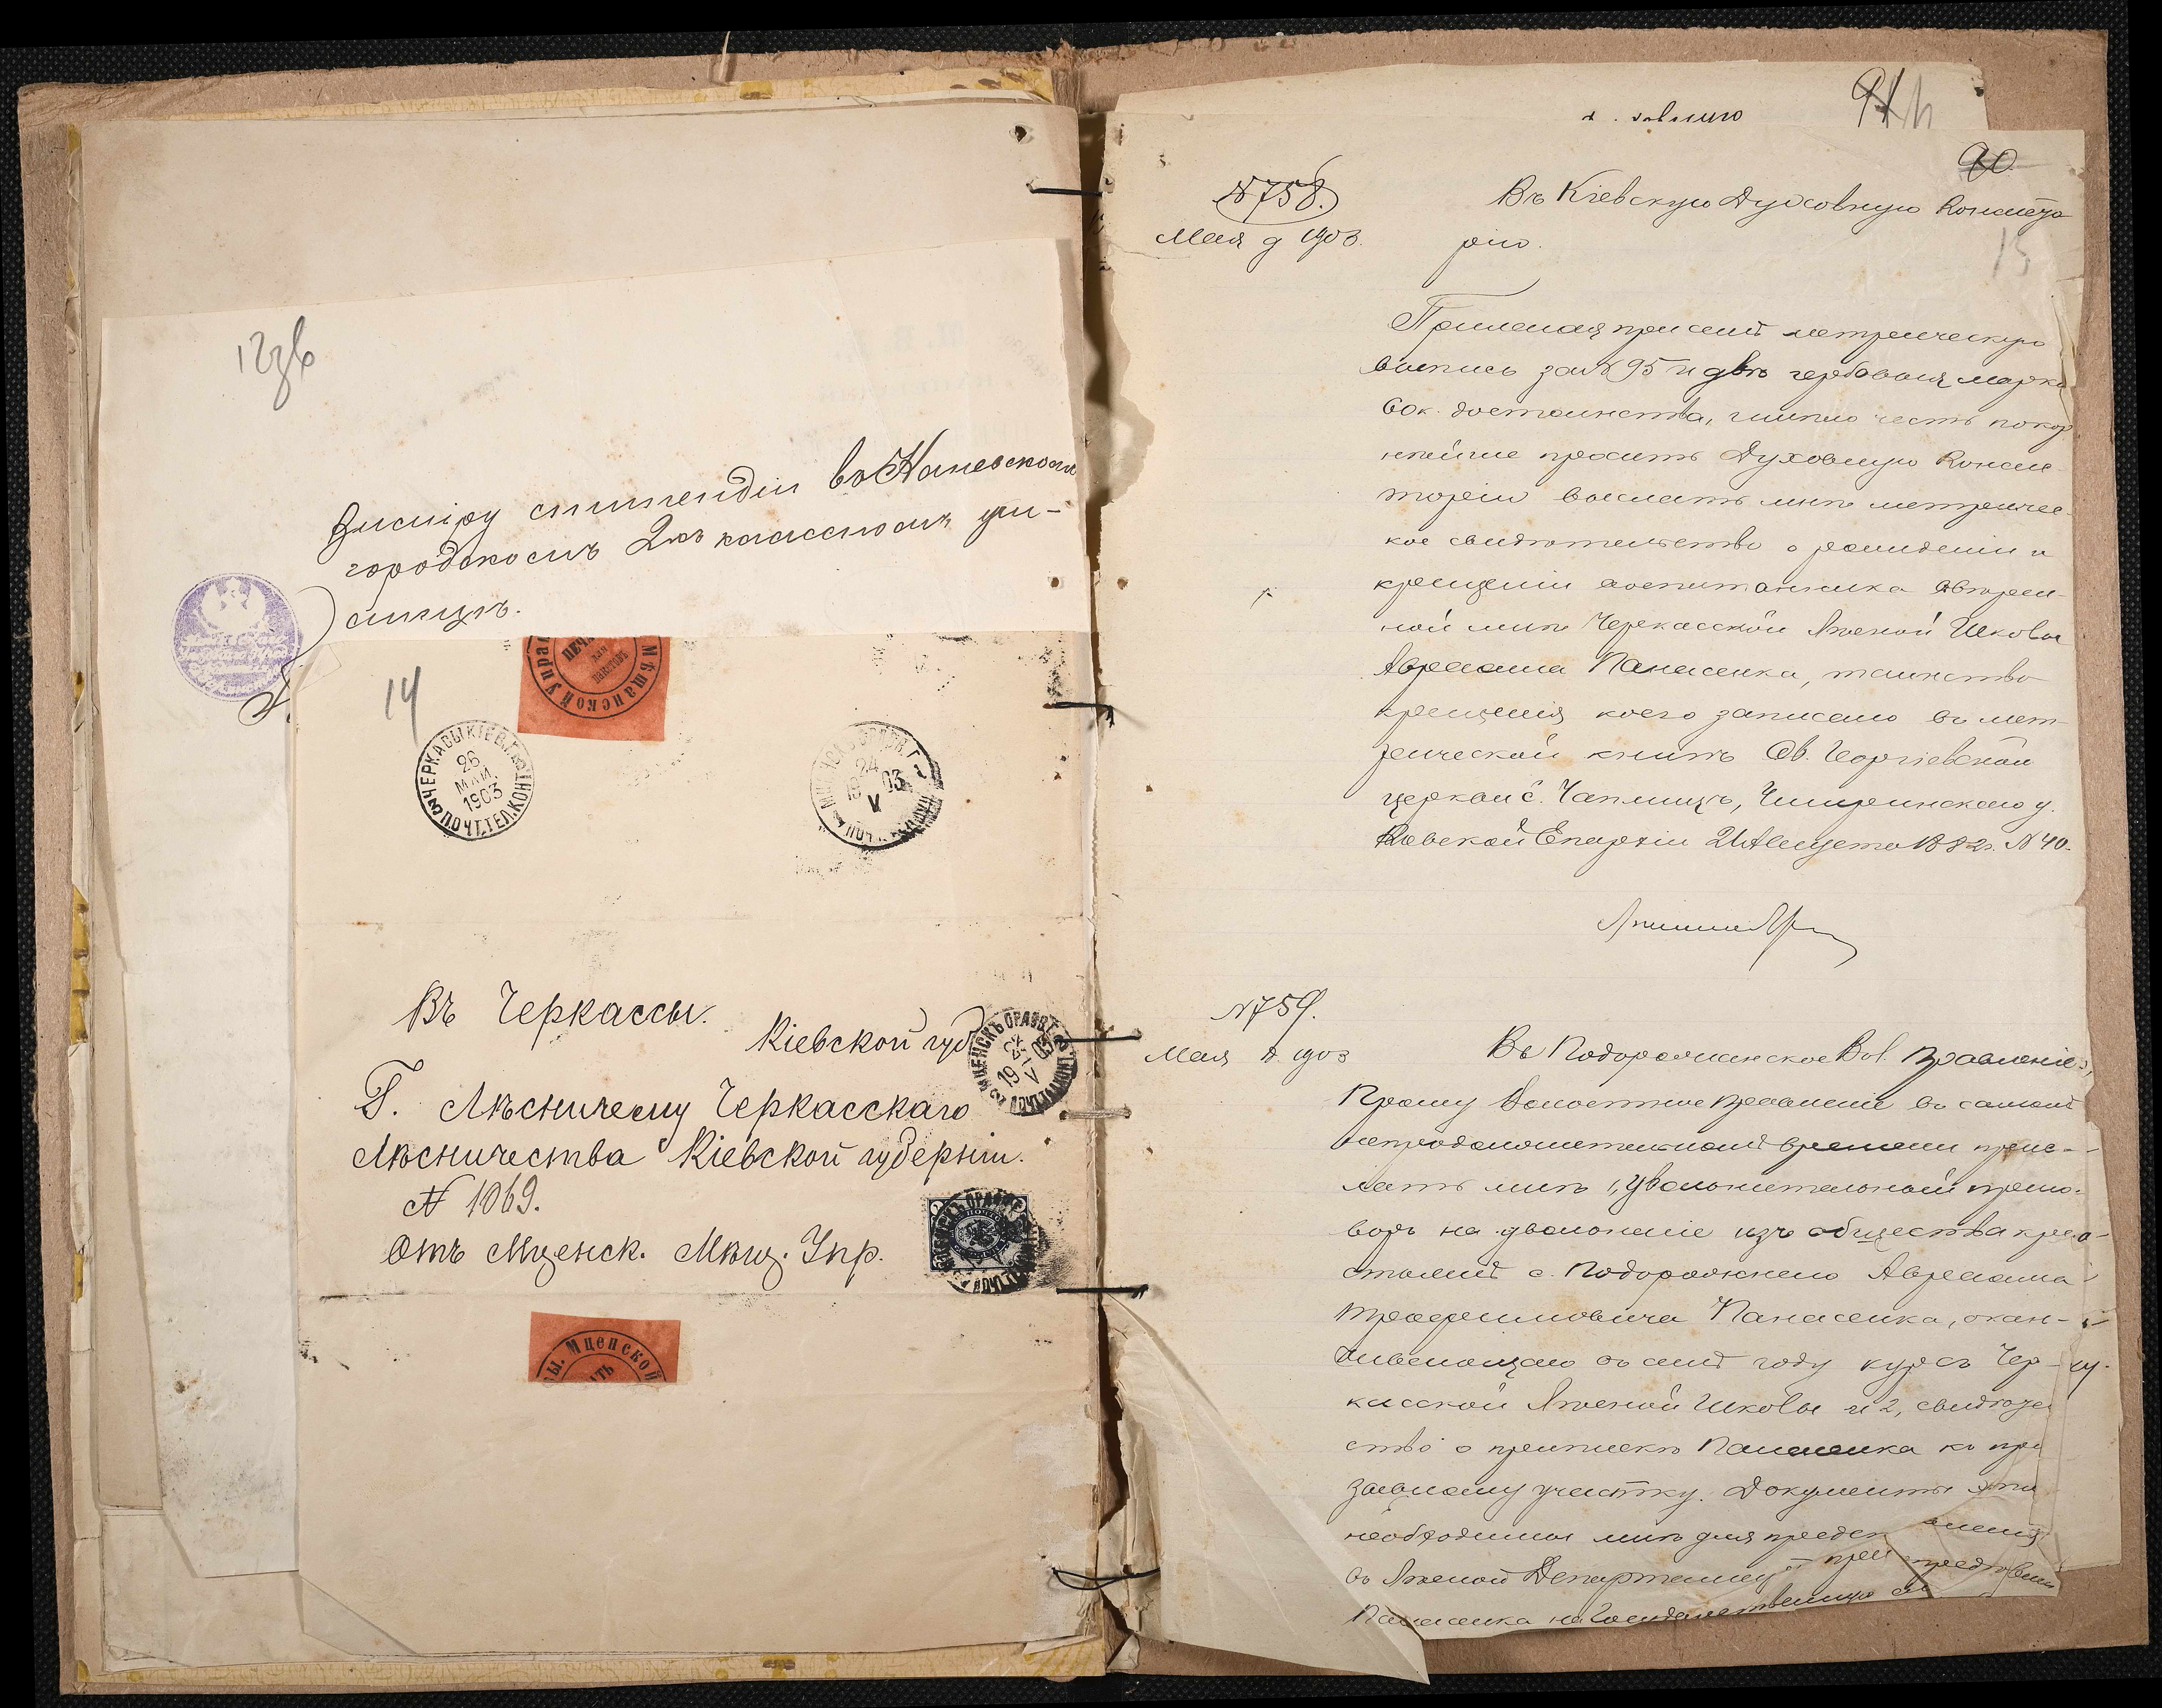 12зв
Внизу стипендіи въ Каневскомъ
городскомъ 2хъ классномъ учи-
лищѣ.
14
Мѣщанской Упра
ЧЕРКАСЫ КІЕВ. Г.
26
МАЙ.
1903
ПОЧТ.ТЕЛ.КОНТ.
24
03
V
Въ Черкассы.
Кіевской губ.
Г. Лѣсничему Черкасскаго
Лѣсничества Кіевской губерніи.
№ 1069.
Отъ Мценск. Мѣщ. Упр.
МЦЕНСКЪ ОРЛОВ. Г.
19 V
ы. Мценской
91
90
15
№ 758.
Мая 9 1903.
Въ Кіевскую Духовную Консисто
рію.
Прилагая при семъ метрическую
выпись за № 95 и двѣ гербовыя марки
60к. достоинства, имѣю честь покор
нѣйше просить Духовную Конси-
торію выслать мнѣ метричес-
кое свидѣтельство о рожденіи и
крещеніи воспитанника ввѣрен-
ной мнѣ Черкасской Лѣсной Школы
Авраама Панасенка, таинство
крещенія коего записано въ мет-
рической книгѣ Св. Георгіевской
церкви с. Чаплищъ, Чигиринскаго у.
Кіевской Епархіи 21 Августа 1882г. № 40.
№ 759.
Мая 9. 1903
Въ Подорожнянское Вол. Правленіе,
Прошу Волостное Правленіе въ самомъ
непродолжительномъ времени прис-
лать мнѣ 1, увольнительный приго-
воръ на увольненіе изъ общества кре-
стьянъ с. Подорожнаго Авраама
Панасенка, окан-
чивающаго въ семъ году курсъ Чер-
касской Лѣсной Школы и 2, свидѣтель
ство о припискѣ Панасенка къ при
зывному участку. Документы эти
необходимы мнѣ для предст авленія
въ Лѣсной Департаментъ при представленіи
Панасенка на Государственную